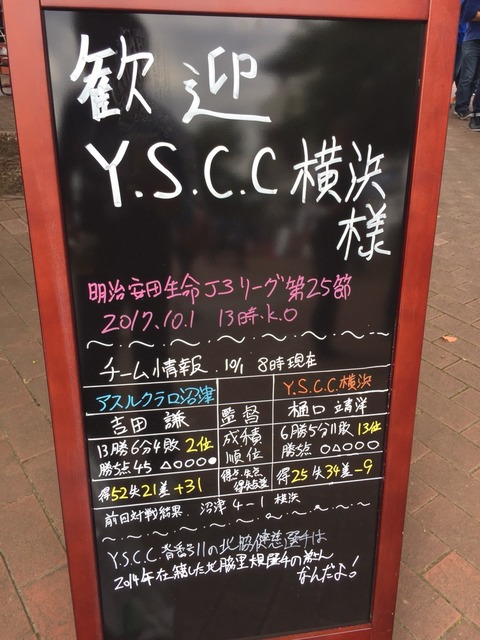 歓迎
Y.S.C.C横浜
様
明治安田生命J3リーグ第25節
2017.10.1 13時.K.O
チーム情報 10/1 8時現在
アスルクラロ沼津 Y.S.C.C.横浜
吉田 謙 監督 樋口 靖洋
13勝6分4敗 2位 成績 6勝5分11敗 13位
勝ち点45 △○○○● 順位 勝ち点 ○△○○○
得52失21差+31 得点.失点 得失点差 得25失34差-9
前回対戦結果 沼津4-1横浜
Y.S.C.C.背番号11の北脇健慈選手は
2014年在籍した北脇里規選手の
なんだよ!